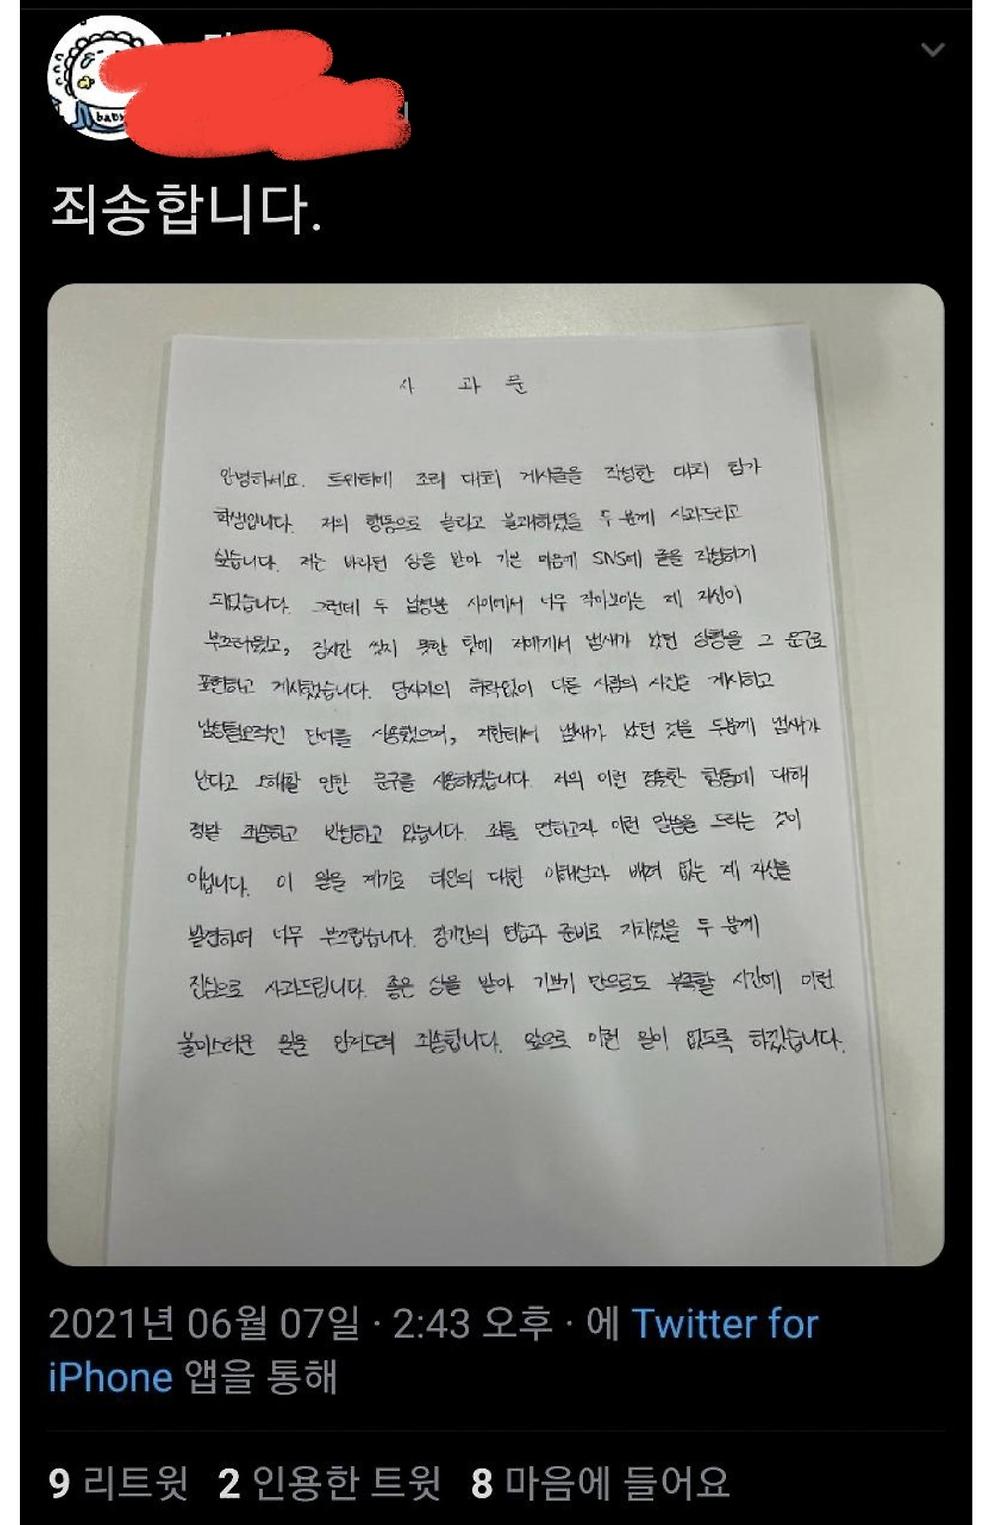 baby
죄송합니다.
사 과 문
안녕하세요. 트위터에 조리 대회 게시글을 작성한 대회 참가
학생입니다. 저의 행동으로 놀라고 불쾌하셨을 두 분께 사과드리고
싶습니다. 저는 바라던 상을 받아 기쁜 마음에 SNS에 글을 작성하게
되었습니다. 그런데 두 남성분 사이에서 너무 작아보이는 제 자신이
부끄러웠고, 장시간 씻지 못한 탓에 저에게서 냄새가 났던 상황을 그 문구로
표현하고 게시했습니다. 당사자의 허락없이 다른 사람의 사진을 게시하고
남성혐오적인 단어를 사용했으며, 저한테서 냄새가 났던 것을 두분께 냄새가
난다고 오해할 만한 문구를 사용하였습니다. 저의 이런 경솔한 행동에 대해
정말 죄송하고 반성하고 있습니다. 죄를 면하고자 이런 말씀을 드리는 것이
아닙니다. 이 일을 계기로 타인의 대한 이해심과 배려 없는 제 자신을
발견하며 너무 부끄럽습니다. 장기간의 연습과 준비로 지치셨을 두 분께
진심으로 사과드립니다. 좋은 상을 받아 기쁘기 만으로도 부족할 시간에 이런
불미스러운 일을 안겨드려 죄송합니다. 앞으로 이런 일이 없도록 하겠습니다.
2021년 06월 07일 · 2:43 오후 · 에 Twitter for
iPhone 앱을 통해
9 리트윗 2 인용한 트윗 8 마음에 들어요